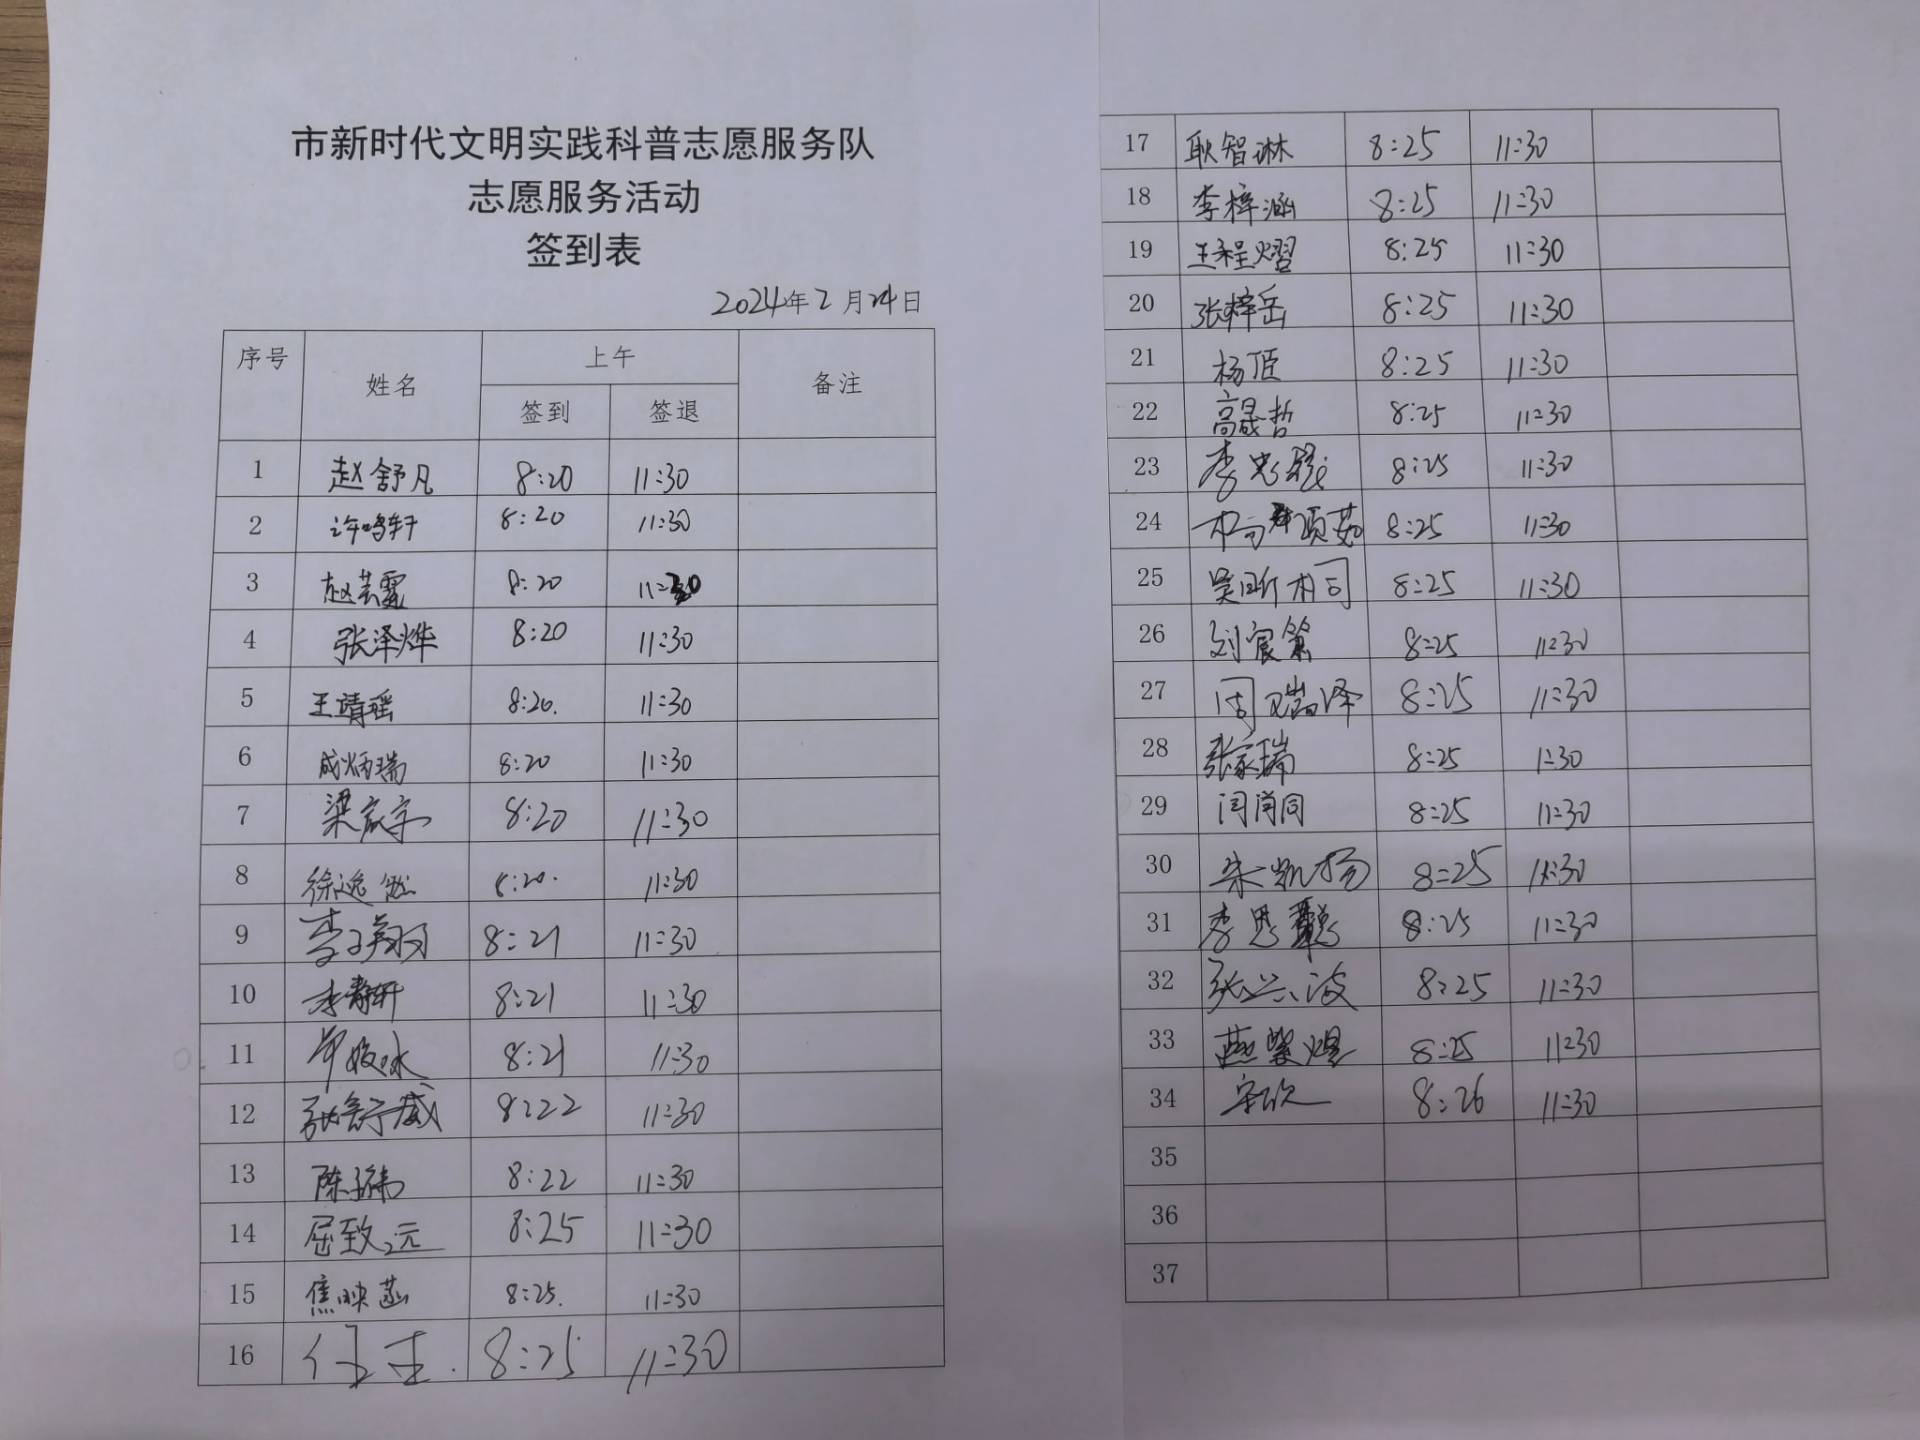 市新时代文明实践科普志愿服务队
志愿服务活动
签到表
2024年2月24日
序号 姓名 上午 备注
签到 签退
1 赵舒凡 8:20 11:30
2 许鸣轩 8:20 11:30
3 赵芸霆 8:20 11:30
4 张泽烨 8:20 11:30
5 王靖瑶 8:20. 11:30
6 成炳瑞 8:20 11:30
7 梁宸宇 8:20 11:30
8 徐逸然 8:20. 11:30
9 李子翔 8:21 11:30
10 李静轩 8:21 11:30
11 8:21 11:30
12 张舒威 8:22 11:30
13 陈 8:22 11:30
14 屈致远 8:25 11:30
15 焦映菡 8:25. 11:30
16 8:25 11:30
17 耿智琳 8:25 11:30
18 李梓涵 8:25 11:30
19 王程熠 8:25 11:30
20 张梓岳 8:25 11:30
21 杨 8:25 11:30
22 高晟哲 8:25 11:30
23 李忠 8:25 11:30
24 8:25 11:30
25 吴昕桐 8:25 11:30
26 刘宸 8:25 11:30
27 周瑞泽 8:25 11:30
28 张家瑞 8:25 11:30
29 闫肖同 8:25 11:30
30 宋凯扬 8:25 11:30
31 李思聪 8:25 11:30
32 张兴波 8:25 11:30
33 燕紫煜 8:25 11:30
34 宋欣 8:26 11:30
35
36
37